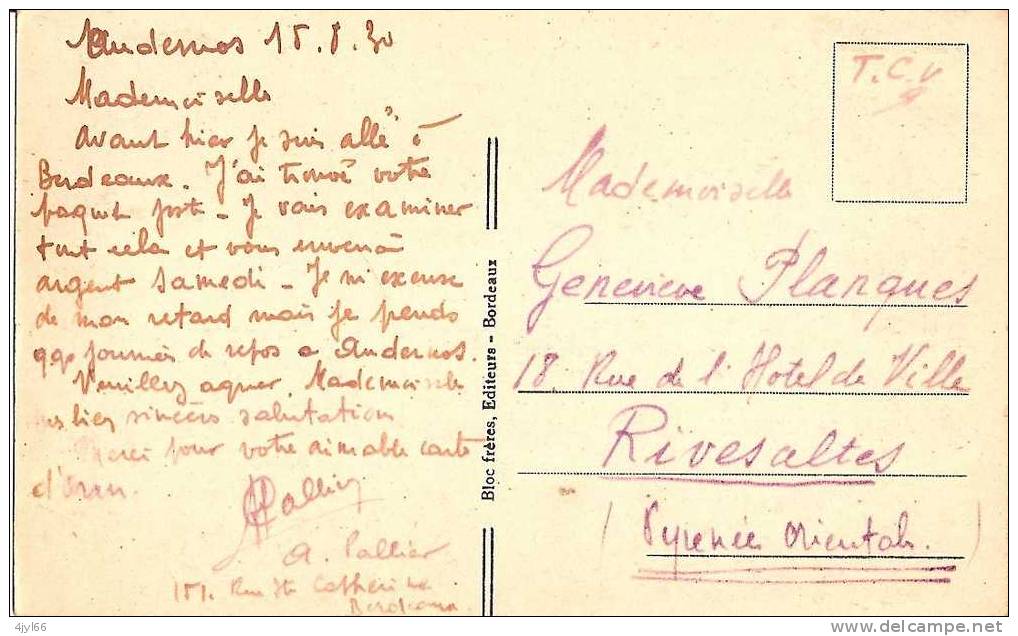 Andernos 15.8.30
Mademoiselle
avant hier je suis allé à
Bordeaux. J'ai trouvé votre
paquet poste - Je vais examiner
tout cela et vous enverrai
argent Samedi - Je m'excuse
de mon retard mais je prends
qqs journées de repos à Andernos.
Veuillez agréer, Mademoiselle
mes bien sincères salutations
Merci pour votre aimable carte
d'Oran.
A. Pallier
151. Rue Ste Catherine
Bordeaux
Bloc frères, Editeurs - Bordeaux
T.C.V
Mademoiselle
Geneviève Planques
18. Rue de l'Hotel de Ville
Rivesaltes
(Pyrénées Orientales.)
4jyl66
delcampe.net